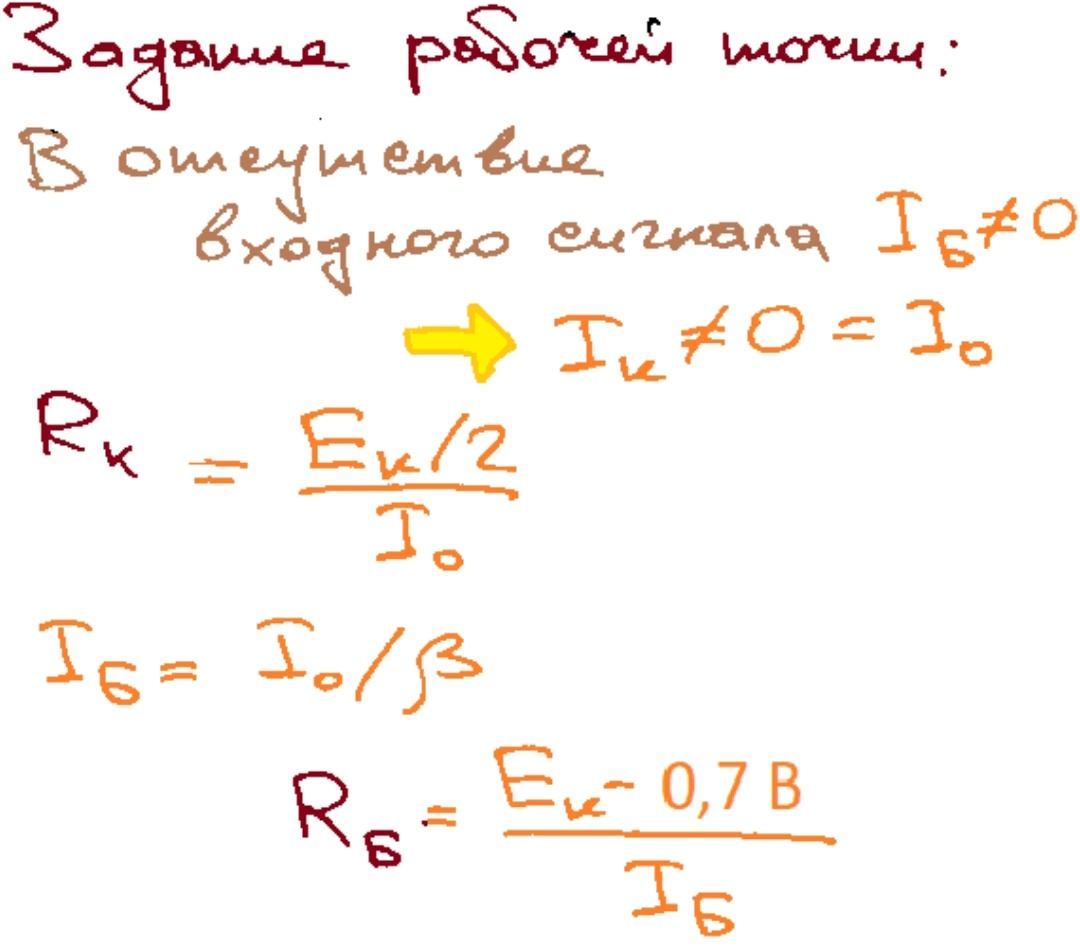 Задание рабочей точки:
В отсутствие
входного сигнала I_б ≠ 0
I_к ≠ 0 = I_0
R_к = (E_к/2) / I_0
I_б = I_0/β
R_б = (E_к - 0,7 В) / I_б